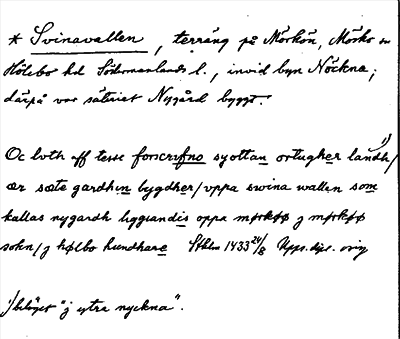 * Svinavallen, terräng på Mörkön, Mörkö sn
Hölebo hd Södermanlands l., invid byn Nöckna;
därpå var säteriet Nygård byggt.
Oc loth aff tesse forscrifno syottan ortugher landh/¹⁾
ær sæte gardhin bygdher/uppa swina wallen som
kallas nygardh liggiandis oppa mørkø j mørkø
sokn/j hølbo hundhare Sthlm 1433 24/8 Upps. dipl. orig
¹⁾ beläget "j ytra nyckna".